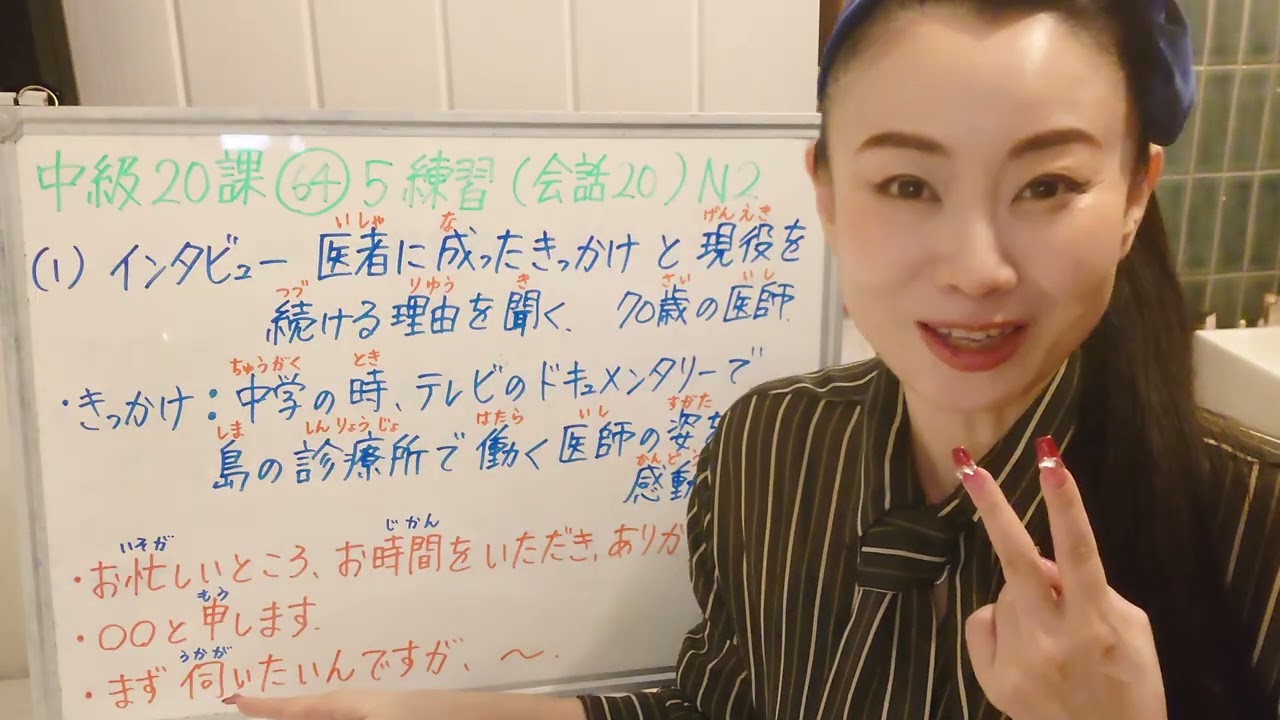 中級20課 64 5 練習(会話20)N2
いしゃ な げんえき
(1) インタビュー 医者に成ったきっかけと現役を
つづ りゆう き さい いし
続ける理由を聞く. 70歳の医師.
ちゅうがく とき
・きっかけ:中学の時、テレビのドキュメンタリーで
しま しんりょうじょ はたら いし すがた
島の診療所で働く医師の姿
かんどう
感動
いそが じかん
・お忙しいところ、お時間をいただき、ありが
もう
・〇〇と申します.
うかが
・まず伺いたいんですが、〜.